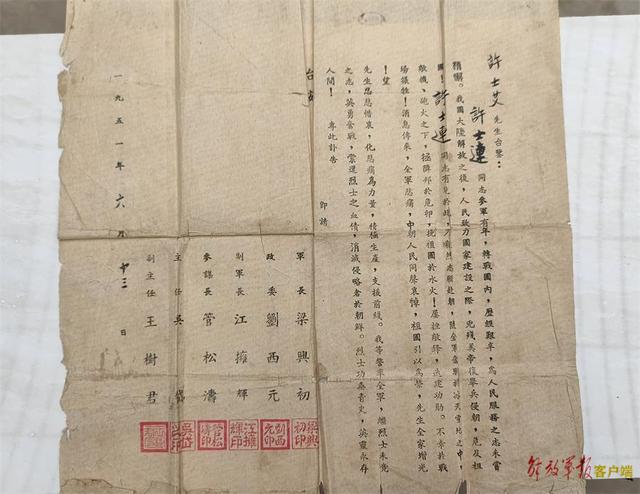 許士艾 先生台鑒：
許士連 同志參軍有年，轉戰國內，歷經艱辛，為人民服務之志未嘗
稍懈。我國大陸解放之後，人民致力國家建設之際，兇殘美帝復舉兵侵朝，危及祖
國！許士連 同志有見於此，乃毅然志願赴朝，隨全軍轉戰於冰天雪地之中，
敵機、砲火之下，拯鄰邦於危卵，挽祖國於水火！屢挫敵鋒，迭建功勛。不幸於戰
場犧牲！消息傳來，全軍悲痛，中朝人民同聲哀悼，祖國引以為譽，先生全家增光
！望
先生忍悲惜哀，化悲痛為力量，積極生產，支援前綫。我等誓率全軍，繼烈士未竟
之志，英勇奮戰，索還烈士之血債，消滅侵略者於朝鮮。烈士功垂青史，英靈永存
人間！ 專此訃告
即請
台
軍長 梁興初
政委 劉西元
副軍長 江擁輝
參謀長 管松濤
主任 吳岱
副主任 王樹君
一九五一年 六 月 十三 日
梁興初印
劉西元印
江擁輝印
管松濤印
吳岱之印
解放軍报 客户端